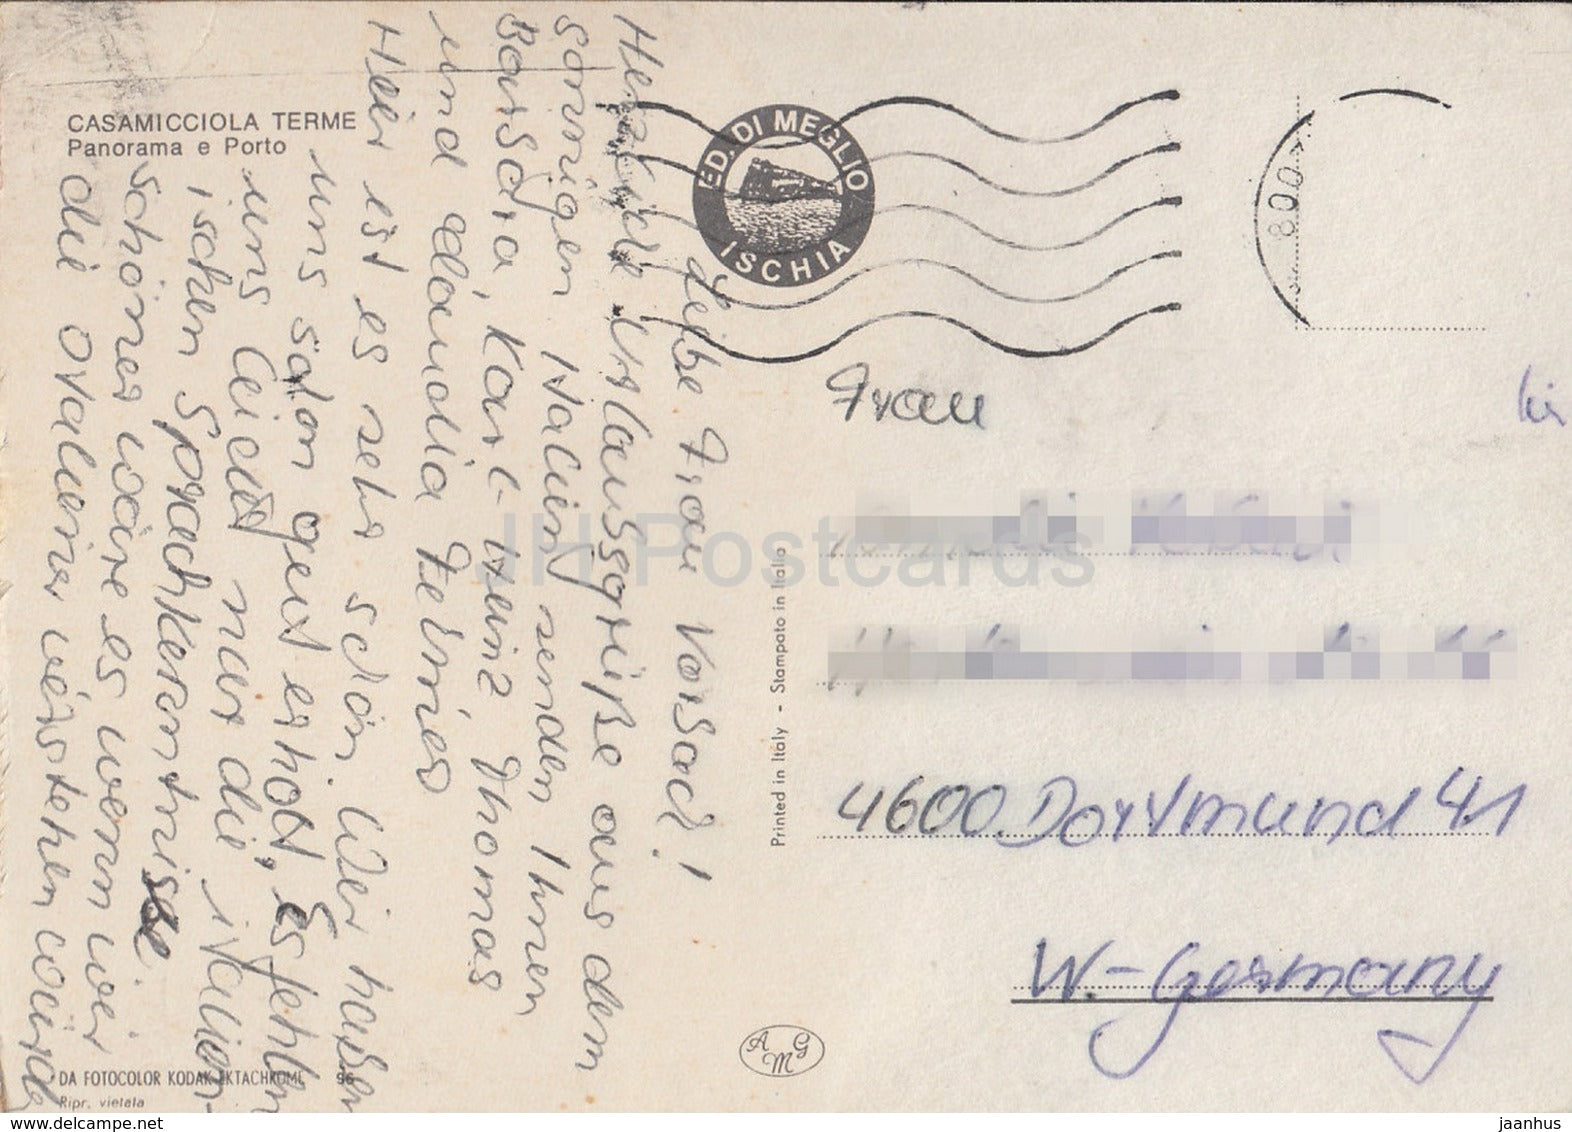 CASAMICCIOLA TERME
Panorama e Porto
Liebe Frau Vorsad!
Herzliche Urlaubsgrüße aus dem
sonnigen Italien senden Ihnen
Barbara, Karl-Heinz Thomas
und Claudia
Hier ist es sehr schön. Wir haben
uns schon gut erholt, Es fehlen
uns leider nur die italien-
ischen Sprachkenntnisse
schöner wäre es wenn wir
die Italiener verstehen würde
DA FOTOCOLOR KODAK EKTACHROME 96
Ripr. vietata
ED. DI MEGLIO
ISCHIA
8 00
Printed in Italy - Stampato in Italia
AMG
Frau
4600 Dortmund 41
W.-Germany
JH Postcards
hippostcard.com
jaanhus